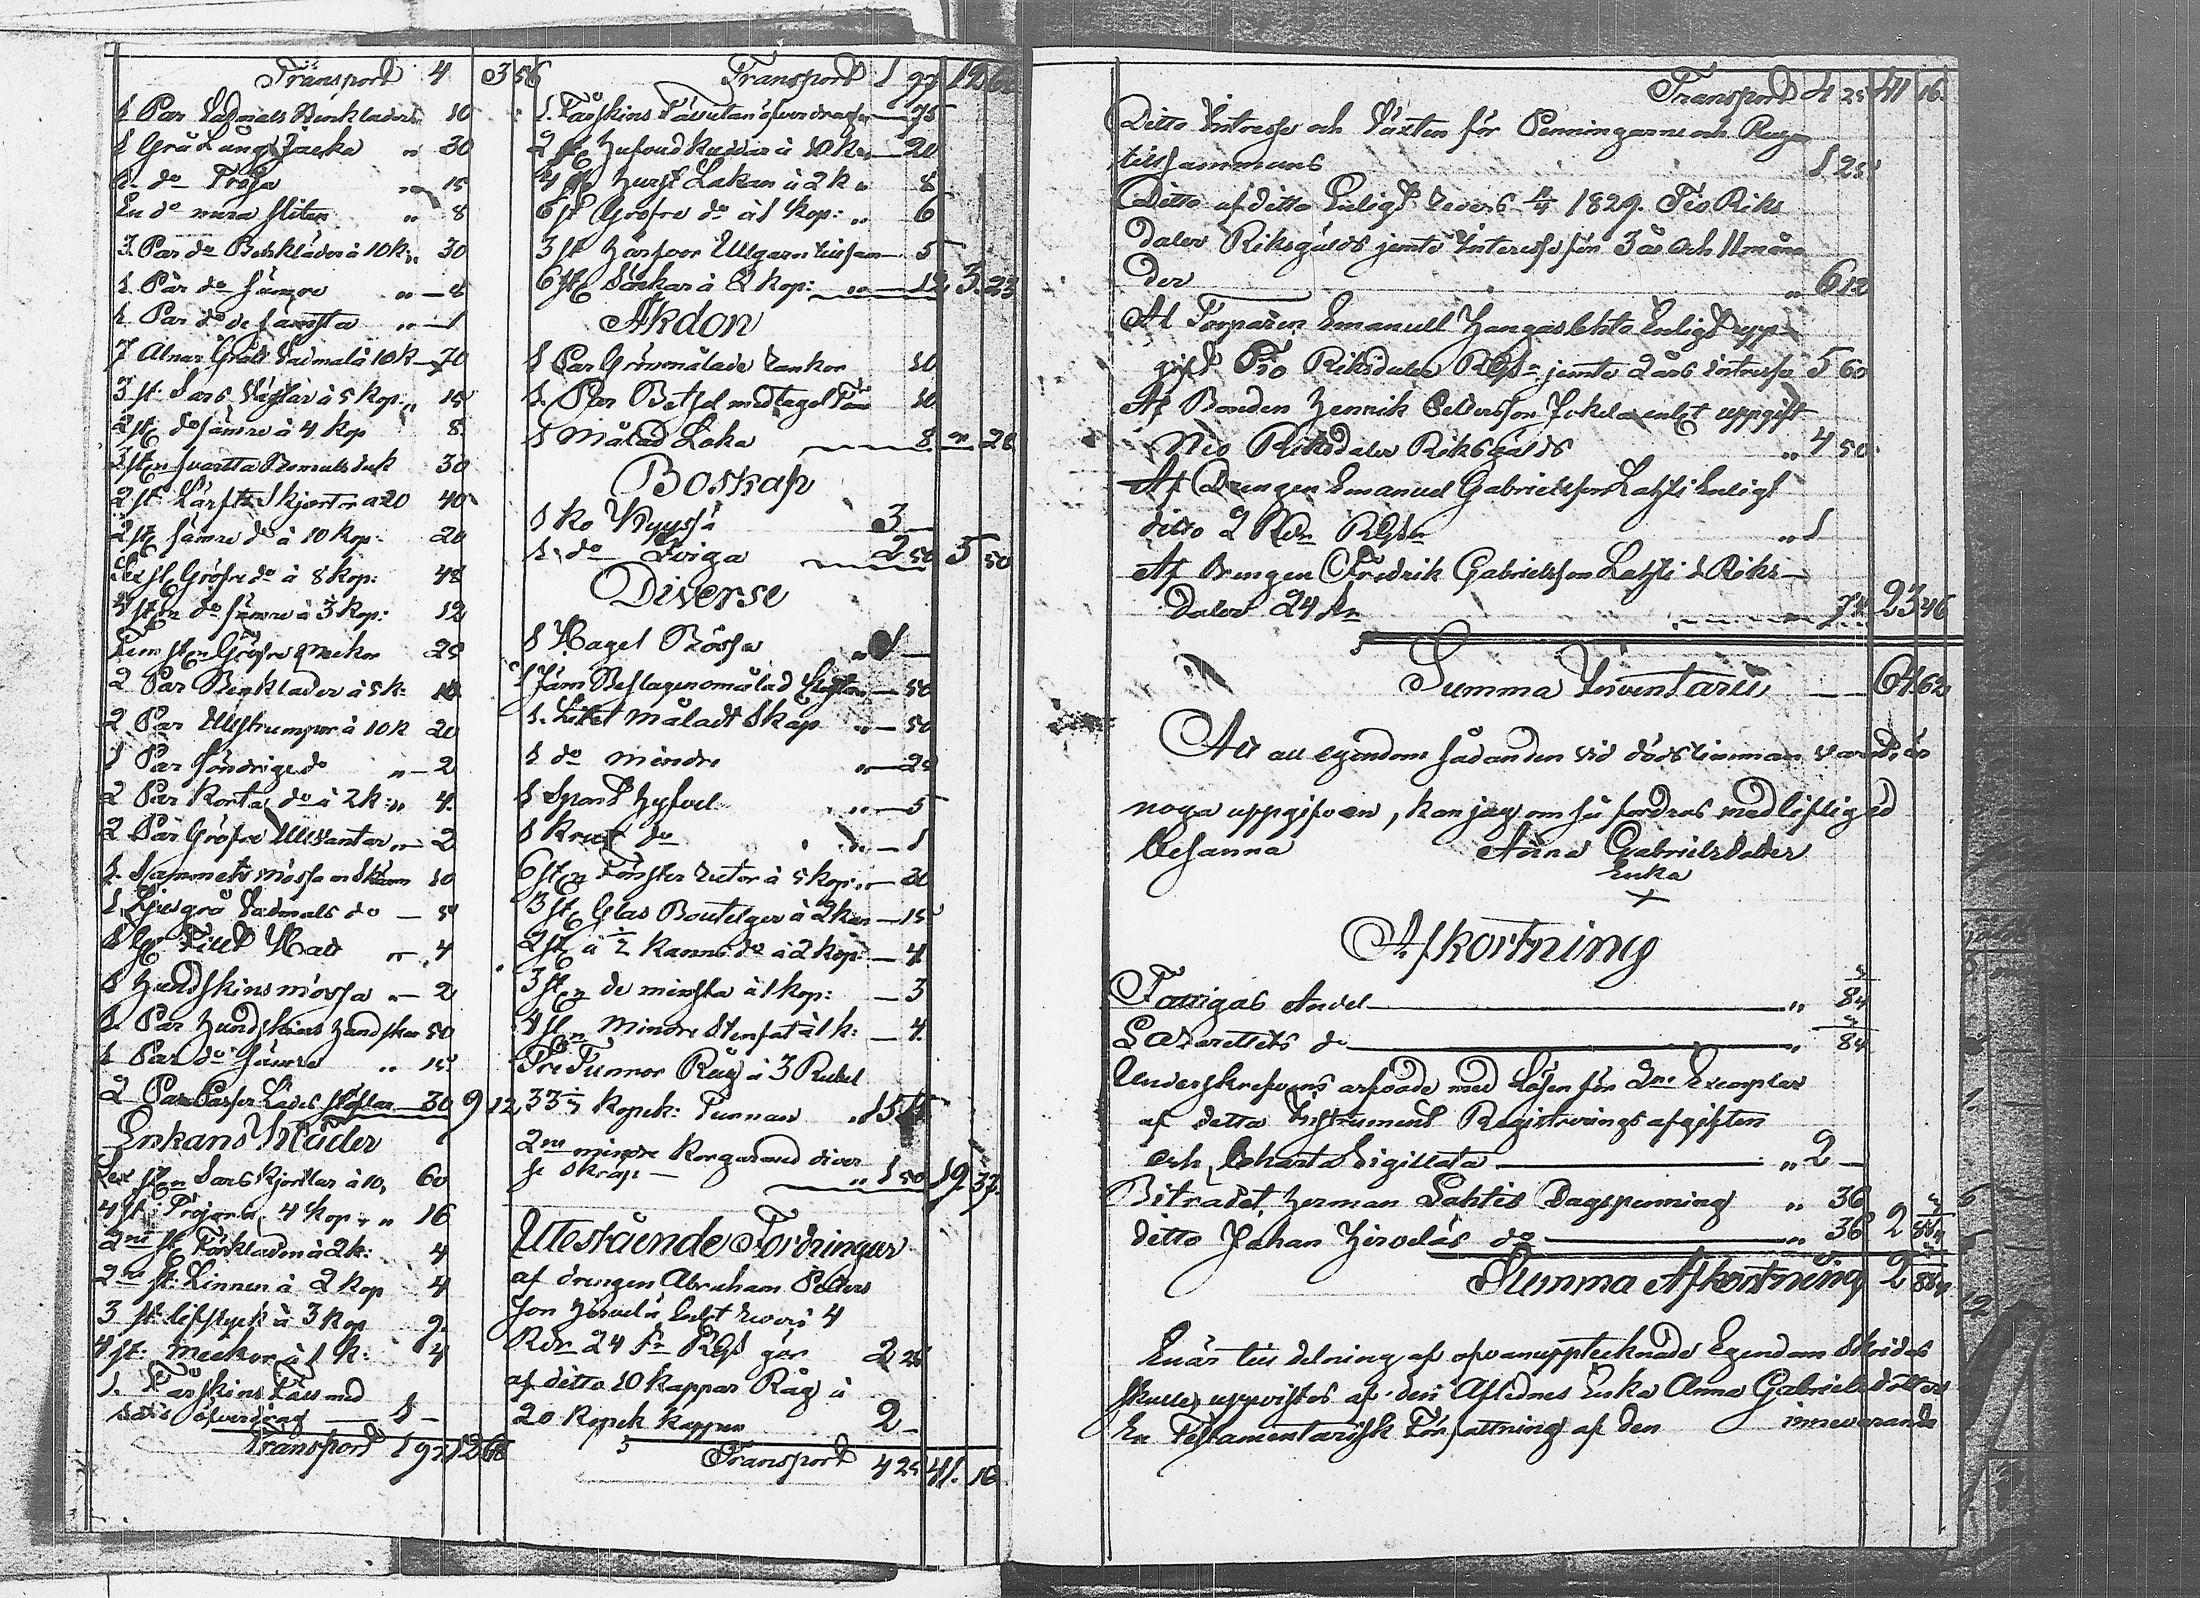 Transport 4 3 56
1 Par Vadmals Benkläder „ 10
1 Grå Lång Jacka „ 30
1 do Tröja „ 15
En do mera sliten „ 8
3 Par do Benkläder à 10 k „ 30
1 Par do sämre „ 4
1 Par do de sämsta „ 1
7 Alnar Grått Vadmal à 10 k 70
3 st Sars Västar à 5 kop: „ 15
2 st do sämre à 4 kop 8
2 st svarta Bomulls duk 30
2 st Lärfts Skjortor a 20 40
2 st sämre do à 10 kop: 20
Sex st Gröfre do à 8 kop: 48
4 st do sämre à 3 kop: 12
Fem st Gröfre Meckor 25
2 Par Benkläder à 5 k: 10
2 Par Ullstrumpor à 10 k 20
1 Par söndrige do „ 2
2 Par Korta do à 2 k: „ 4
2 Par Gröfre Ullvantar „ 2
1 Sammets mössa m Skärm 10
1 Ljusgrå Vadmals do 5
1 st Filt Hatt „ 4
1 Hundskins mössa „ 2
1 Par Hundskins Handskar 50
1 Par do Sämre „ 15
2 Par Läders stöflar 30 9 12
Enkans Kläder
Sex st Sars Kjortlar à 10 60
4 st Tröjor à 4 kop „ 16
2ne st Förkläden à 2 k: 4
2ne st: Linnen à 2 kop 4
3 st lifstyck à 3 kop 9
4 st: Meckor à 1 k: 4
1 Fårskins Fäll med
öfverdrag 1 —
Transport 1 97 12 68
Transport 1 97 12 68
1 Fårskins Fäll utan öfverdrag 75
2 st Hufvud kuddar à 10 k 20
4 st Hurst Lakan à 2 k „ 8
6 st Gröfre do à 1 kop: „ 6
3 st Ullgarn 5
6 st Säckar à 2 kop: „ 12 3 23
Åkdon
1 Par Grönmålade 10
1 Par Betsel med tagel Töm 10
1 Målad Loka 8 „ 28
Boskap
1 ko Kyyssä 3 —
1 do Qviga 2 50 5 50
Diverse
1 Hagel Bössa „ 1 —
1 Järn Beslagen omålad 50
1 Litet Måladt Skåp „ 50
1 do mindre „ 25
1 Spant Hyfvel „ 5
1 Krut do „ 1
6 st Fönster rutor à 5 kop: „ 30
3 st Glas Boutelger à 2 k 15
2 st à ½ kanns do à 2 kop: 4
3 st de minsta à 1 kop: 3
4 st Mindre Stenfat à 1 k: 4
Tre Tunnor Råg à 3 Rubel
33⅓ kopek: Tunnan
2ne mindre Korgar med diver
se Skrap „ 1 50 19 37
Utestående Fordringar
af drengen Abraham Peders
son Hirvelä Enl:t revers 4
Rdr 24 sk RGs gör 2 25
af ditto 10 kappar Råg à
20 kopek kappen 2 —
Transport 4 25 41 16
Transport 4 25 41 16
Ditto Intresse och Växten för Penningarne och Rågen
tillsammans 1 25
Ditto af ditto Enligt revers 1829. Tio Riks
daler Riksgälds jemte Intresse för 3 år och 11 måna
der „ 6 12
Af Torparen Emanuel Hangaslehto Enligt upp
gift Tio Riksdaler RGs jemte 2 års intresse 5 60
Af Bonden Henrik Pedersson Jokela enl:t uppgift
Nio Riksdaler Riksgälds „ 4 50
Af Drengen Emanuel Gabrielsson Lahti Enligt
ditto 2 Rdr RGs „ 1
Af Drengen Fredrik Gabrielsson Lahti 1 Riks
daler 24 sk 74 23 46
Summa Inventarii 64 62
Att all egendom sådan den vid dödstimman varit är
noga uppgifven, kan jag om så fordras med liflig ed
besanna Anna Gabrielsdotter
Enka
+
Afkortning
Fattigas Andel „ 8
Lazarettets do „ 8
Underskrefvens arfvode med Lösen för 2ne Exemplar
af detta Instrument Registrerings afgiften
och Charta Sigillata „ 2 —
Biträdet Herman Lahtis Dagspenning „ 36
ditto Johan Hirveläs do „ 36 2
Summa Afkortning 2
Enär till delning af ofvanupptecknade Egendom Skridas
skulle, uppvistes af den Aflednes Enka Anna Gabrielsdotter
En Testamentarisk Författning af den innevarande